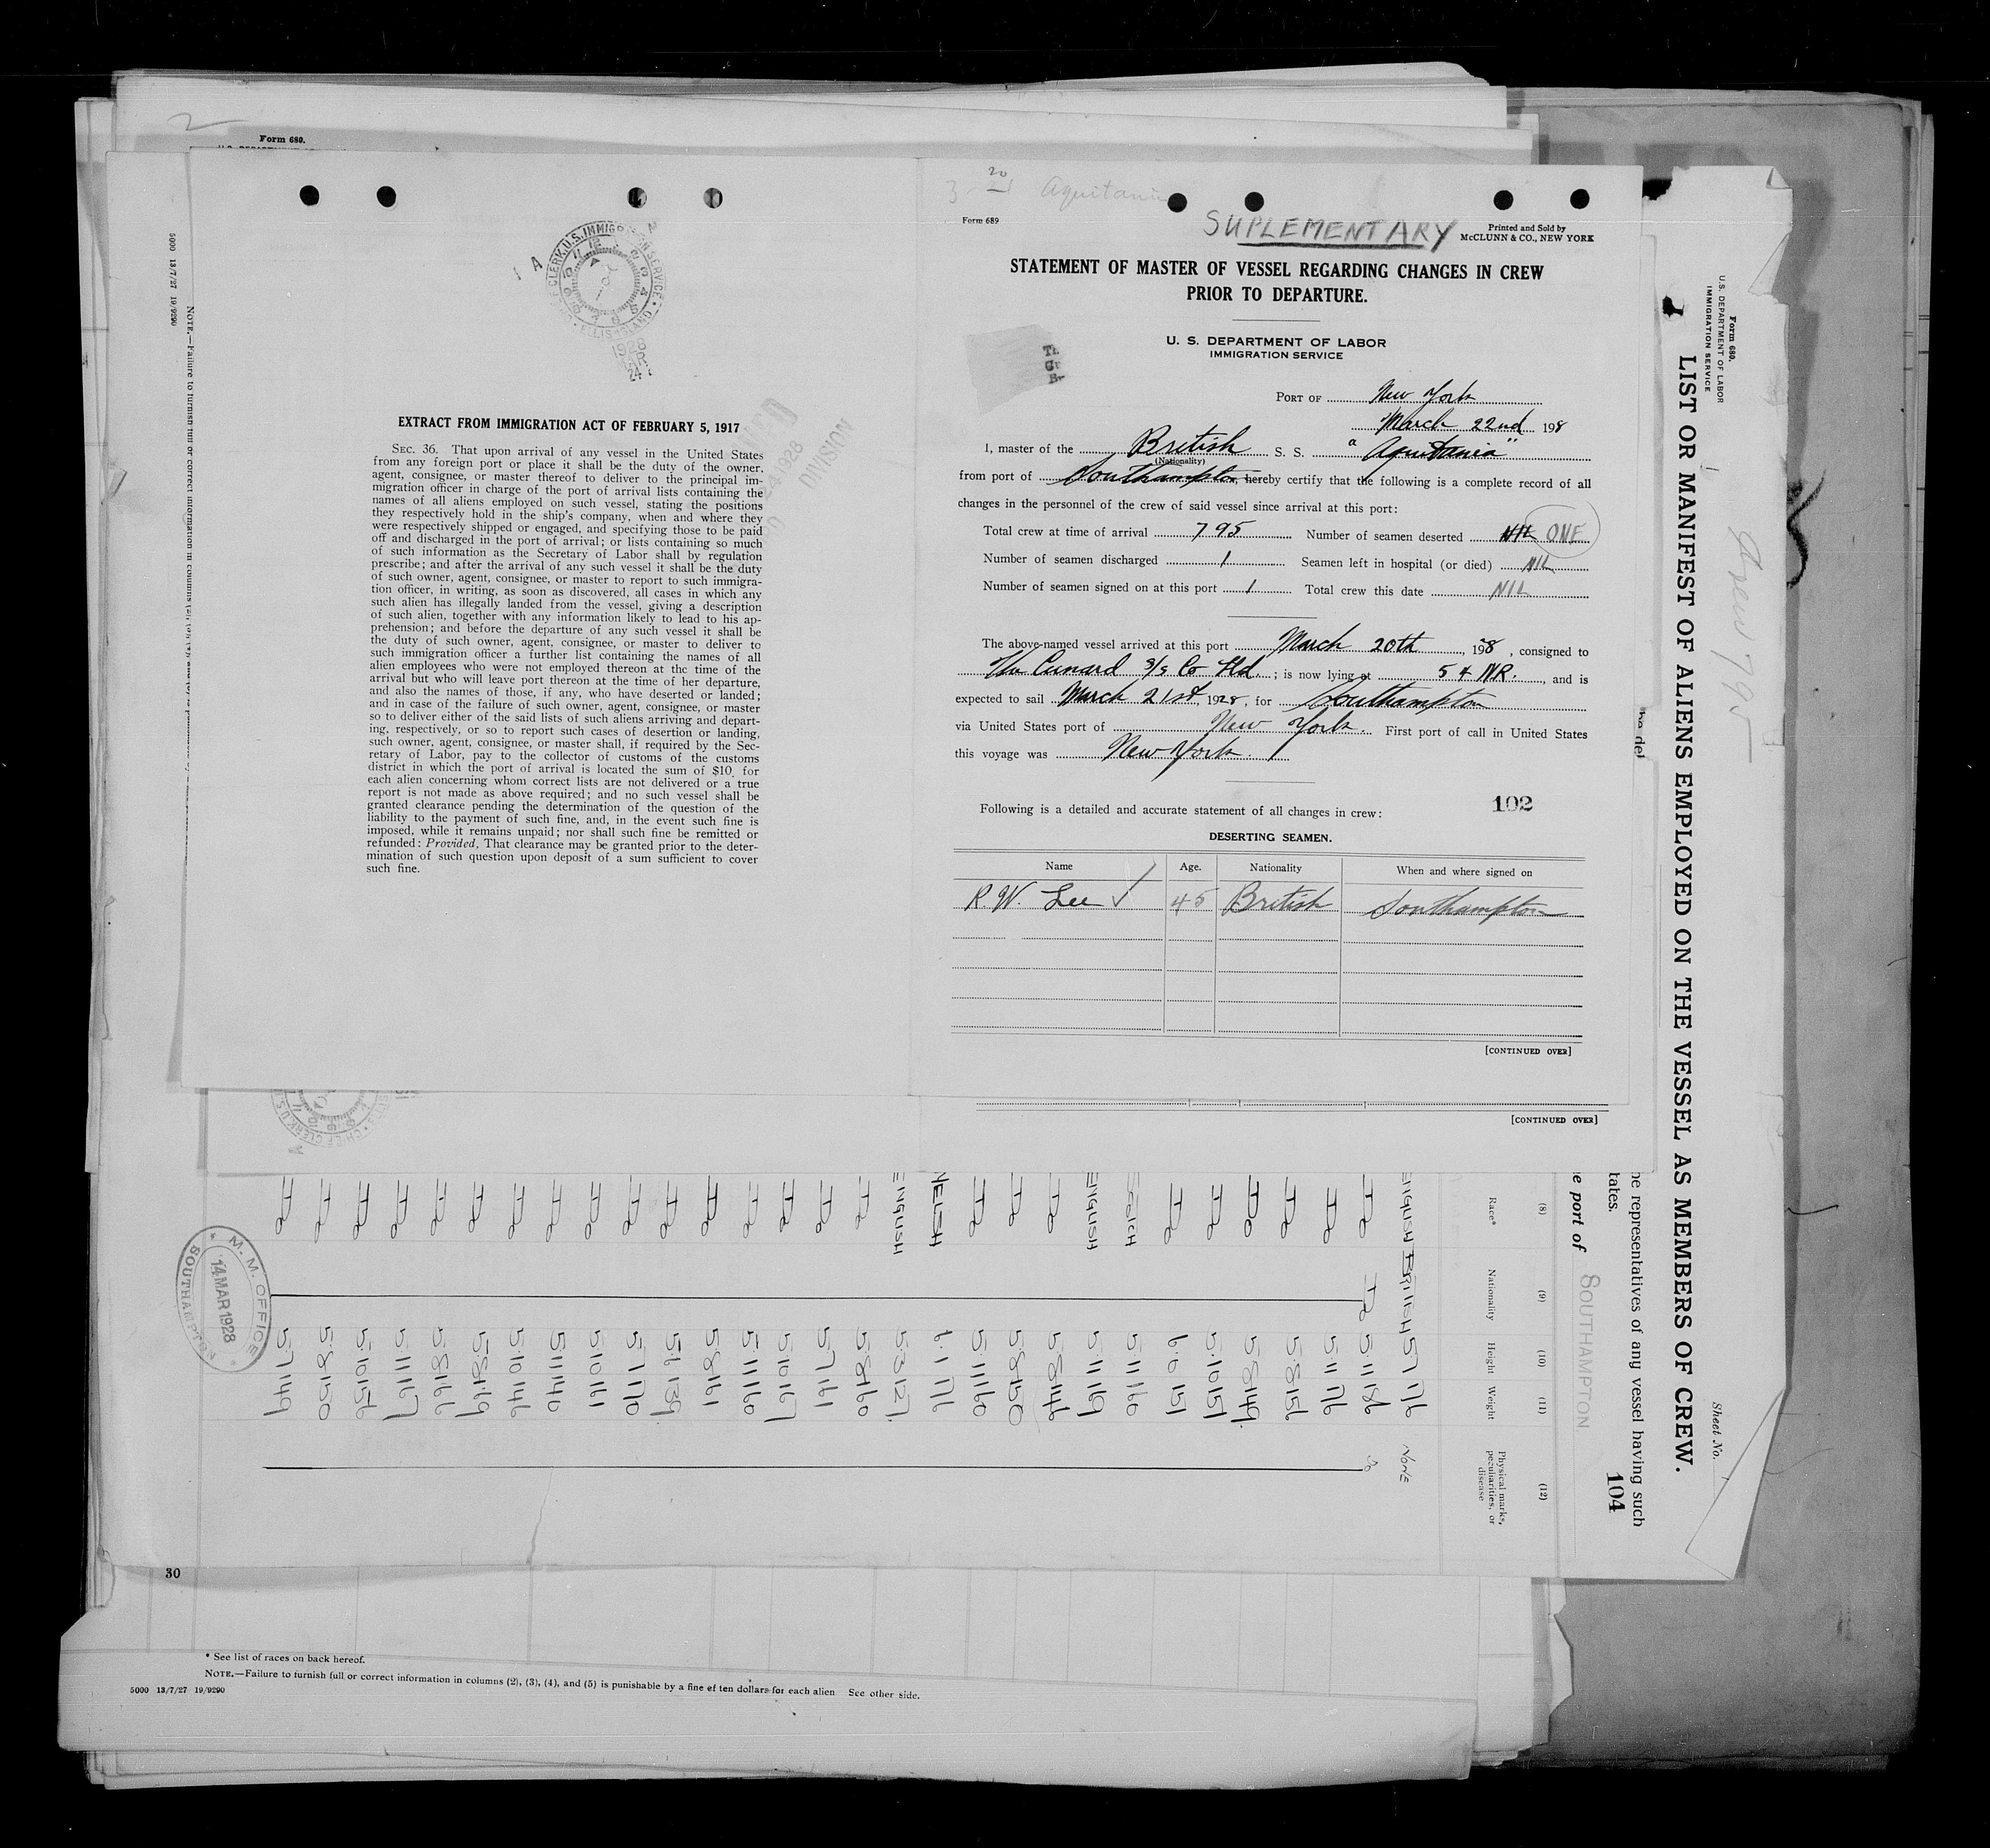 Form 689.
5000 13/7/27 19/9290
NOTE.—Failure to furnish full or correct information in columns
CLERK, U.S. IMMIGRATION SERVICE
ELLIS ISLAND
24
DIVISION
EXTRACT FROM IMMIGRATION ACT OF FEBRUARY 5, 1917
SEC. 36. That upon arrival of any vessel in the United States
from any foreign port or place it shall be the duty of the owner,
agent, consignee, or master thereof to deliver to the principal im-
migration officer in charge of the port of arrival lists containing the
names of all aliens employed on such vessel, stating the positions
they respectively hold in the ship's company, when and where they
were respectively shipped or engaged, and specifying those to be paid
off and discharged in the port of arrival; or lists containing so much
of such information as the Secretary of Labor shall by regulation
prescribe; and after the arrival of any such vessel it shall be the duty
of such owner, agent, consignee, or master to report to such immigra-
tion officer, in writing, as soon as discovered, all cases in which any
such alien has illegally landed from the vessel, giving a description
of such alien, together with any information likely to lead to his ap-
prehension; and before the departure of any such vessel it shall be
the duty of such owner, agent, consignee, or master to deliver to
such immigration officer a further list containing the names of all
alien employees who were not employed thereon at the time of the
arrival but who will leave port thereon at the time of her departure,
and also the names of those, if any, who have deserted or landed;
and in case of the failure of such owner, agent, consignee, or master
so to deliver either of the said lists of such aliens arriving and depart-
ing, respectively, or so to report such cases of desertion or landing,
such owner, agent, consignee, or master shall, if required by the Sec-
retary of Labor, pay to the collector of customs of the customs
district in which the port of arrival is located the sum of $10 for
each alien concerning whom correct lists are not delivered or a true
report is not made as above required; and no such vessel shall be
granted clearance pending the determination of the question of the
liability to the payment of such fine, and, in the event such fine is
imposed, while it remains unpaid; nor shall such fine be remitted or
refunded: Provided, That clearance may be granted prior to the deter-
mination of such question upon deposit of a sum sufficient to cover
such fine.
Aquitania
Form 689
SUPLEMENTARY
Printed and Sold by
McCLUNN & CO., NEW YORK
STATEMENT OF MASTER OF VESSEL REGARDING CHANGES IN CREW
PRIOR TO DEPARTURE.
U. S. DEPARTMENT OF LABOR
IMMIGRATION SERVICE
PORT OF New York
March 22nd 198
I, master of the British S. S. "Aquitania"
(Nationality)
from port of Southampton, hereby certify that the following is a complete record of all
changes in the personnel of the crew of said vessel since arrival at this port:
Total crew at time of arrival 795 Number of seamen deserted NIL ONE
Number of seamen discharged 1 Seamen left in hospital (or died) NIL
Number of seamen signed on at this port 1 Total crew this date NIL
The above-named vessel arrived at this port March 20th, 198, consigned to
The Cunard S/S Co Ltd.; is now lying at 54 NR., and is
expected to sail March 21st, 1928, for Southampton
via United States port of New York. First port of call in United States
this voyage was New York.
Following is a detailed and accurate statement of all changes in crew:
102
DESERTING SEAMEN.
Name Age. Nationality When and where signed on
R. W. Lee 45 British Southampton
[CONTINUED OVER]
[CONTINUED OVER]
Form 680.
U.S. DEPARTMENT OF LABOR
IMMIGRATION SERVICE
LIST OR MANIFEST OF ALIENS EMPLOYED ON THE VESSEL AS MEMBERS OF CREW.
Sheet No. 1
Crew 795
he representatives of any vessel having such
tates.
e port of SOUTHAMPTON
104
(8) (9) (10) (11) (12)
Race* Nationality Height Weight Physical marks, peculiarities, or disease
ENGLISH BRITISH 5 7 176 NONE
Do Do 5 11 186 Do
Do 5 11 176
Do 5 8 156
Do 5 8 149
Do 5 10 151
Do 6 0 151
SCOTCH 5 11 160
ENGLISH 5 11 149
Do 5 8 146
Do 5 8 150
Do 5 11 160
WELSH 6 1 176
ENGLISH 5 3 127
Do 5 8 160
Do 5 7 161
Do 5 10 167
Do 5 11 160
Do 5 8 161
Do 5 6 139
Do 5 7 170
Do 5 10 161
Do 5 11 146
Do 5 10 146
Do 5 8 149
Do 5 8 166
Do 5 11 167
Do 5 10 156
Do 5 8 150
Do 5 7 149
M. M. OFFICE
14 MAR 1928
SOUTHAMPTON
30
* See list of races on back hereof.
NOTE.—Failure to furnish full or correct information in columns (2), (3), (4), and (5) is punishable by a fine of ten dollars for each alien See other side.
5000 13/7/27 19/9290